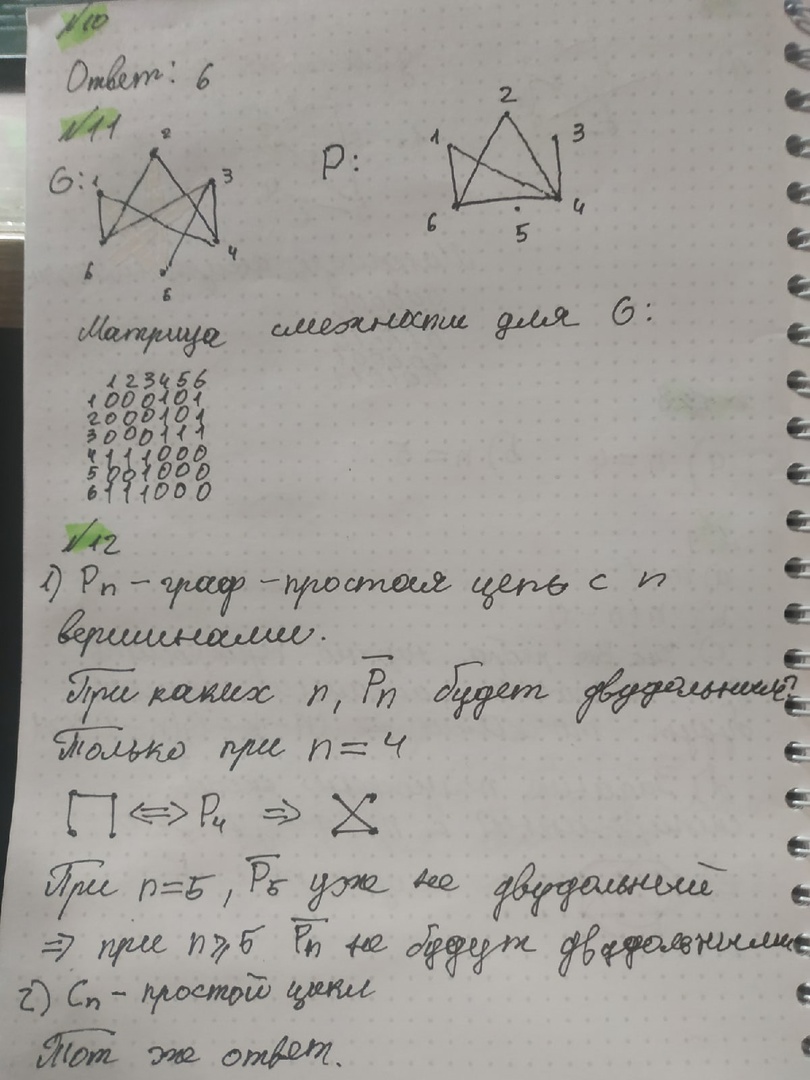 №10
Ответ: 6
№11
G: 1 2 3 4 6 6
P: 1 2 3 4 5 6
Матрица смежности для G:
1 2 3 4 5 6
1 0 0 0 1 0 1
2 0 0 0 1 0 1
3 0 0 0 1 1 1
4 1 1 1 0 0 0
5 0 0 1 0 0 0
6 1 1 1 0 0 0
№12
1) Pn – граф – простая цепь с n
вершинами.
При каких n, P̅n будет двудольным?
Только при n = 4
⇔ P4 ⇒
При n=5, P̅5 уже не двудольный
⇒ при n⩾5 P̅n не будут двудольными
2) Cn – простой цикл
Тот же ответ.